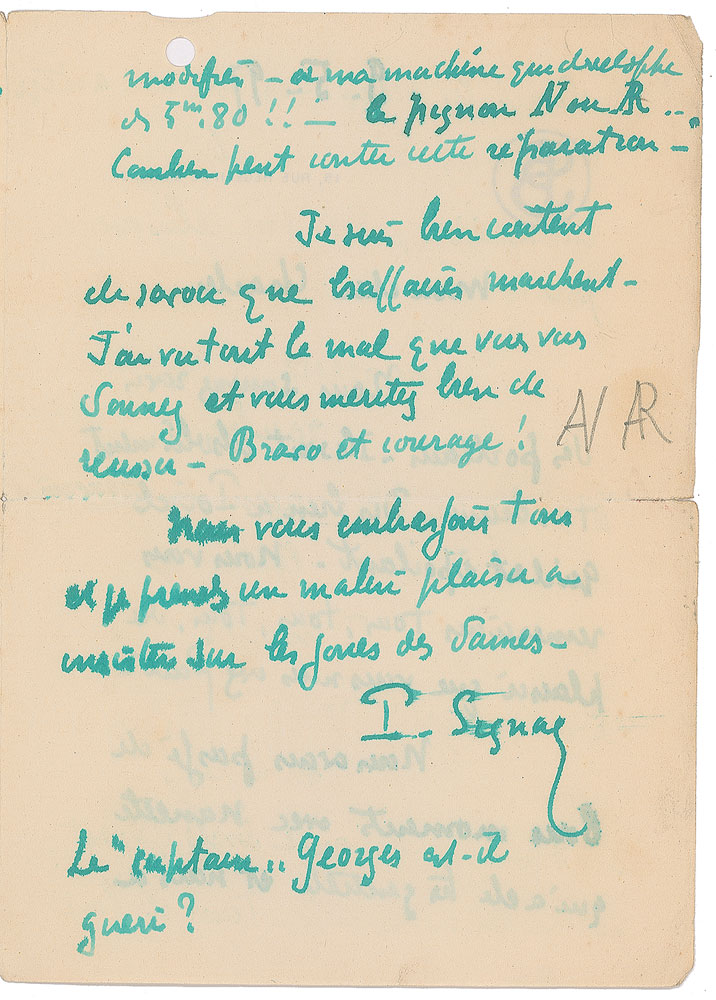 modifiés – de ma machine qui développe
des 5m.80 !! – le pignon AV ou AR ...
Combien peut couter cette réparation –
Je suis bien content
de savoir que les affaires marchent –
J'ai vu tout le mal que vous vous
donnez et vous meritez bien de
reussir – Bravo et courage !
AV AR
Nous vous embrassons tous
et je prends un malin plaisir a
insister sur les joues des dames –
P. Signac
Le " capitaine " Georges est-il
gueri ?